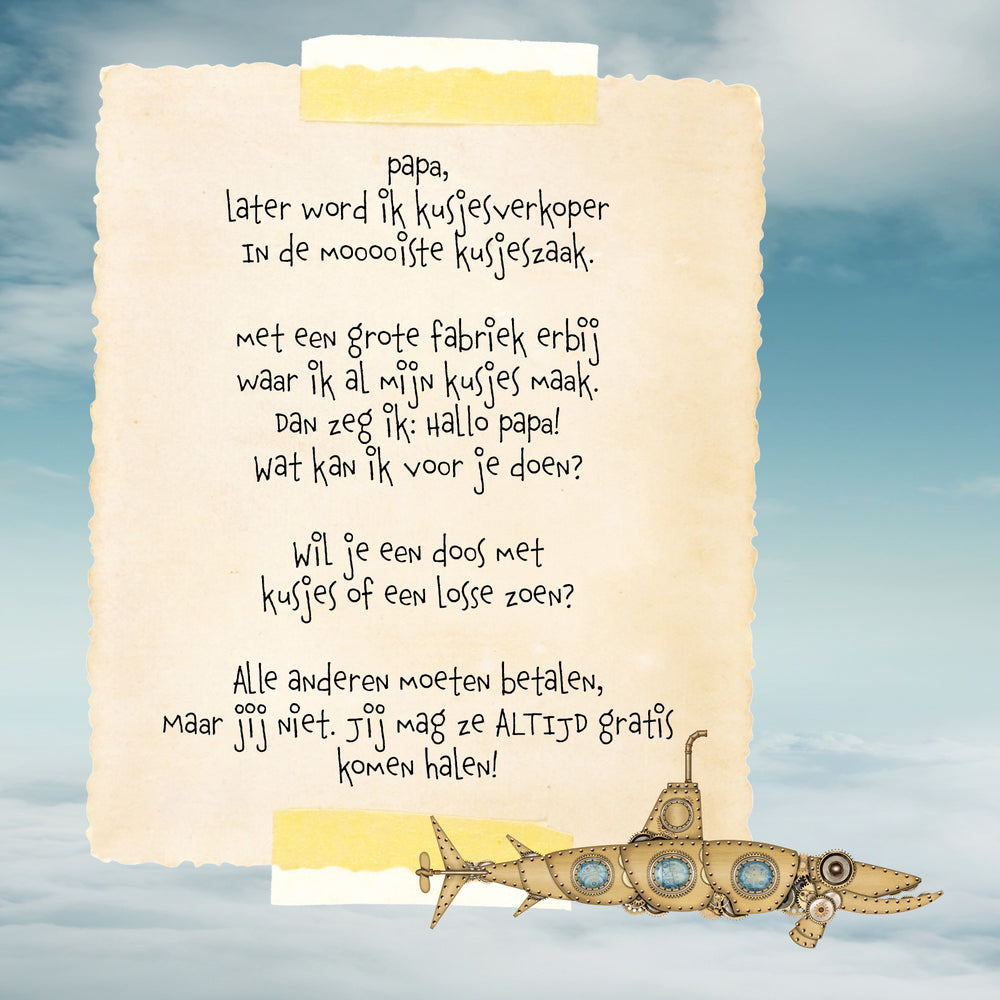 papa,
Later word ik kusjesverkoper
In de mooooiste kusjeszaak.
Met een grote fabriek erbij
waar ik al mijn kusjes maak.
Dan zeg ik: Hallo papa!
Wat kan ik voor je doen?
Wil je een doos met
kusjes of een losse zoen?
Alle anderen moeten betalen,
Maar jij niet. Jij mag ze ALTIJD gratis
komen halen!